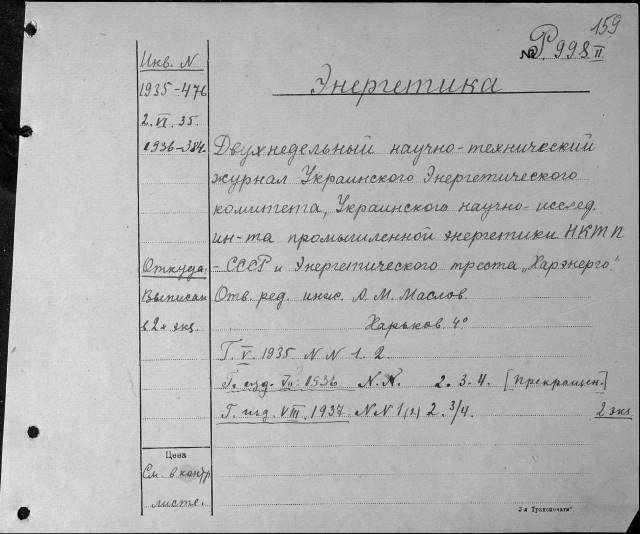 159
№ Р. 998 II
Энергетика
Инв. N
1935-476
2. VI. 35.
1936-384.
Двухнедельный научно-технический
журнал Украинского Энергетического
комитета, Украинского научно-исслед.
ин-та промышленной энергетики НКТП
Откуда:
- СССР и Энергетического треста „Харэнерго".
Выписан
в 2х экз.
Отв. ред. инж. А. М. Маслов.
Харьков 4°
Г. V. 1935 N N 1. 2.
Г. изд. 1936 N. N. 2. 3-4. [Прекращен.]
Г. изд. VIII. 1937 N N 1(2) 2. 3/4. 2 экз
Цена
См. в контр.
листе.
3-я Транспечати"